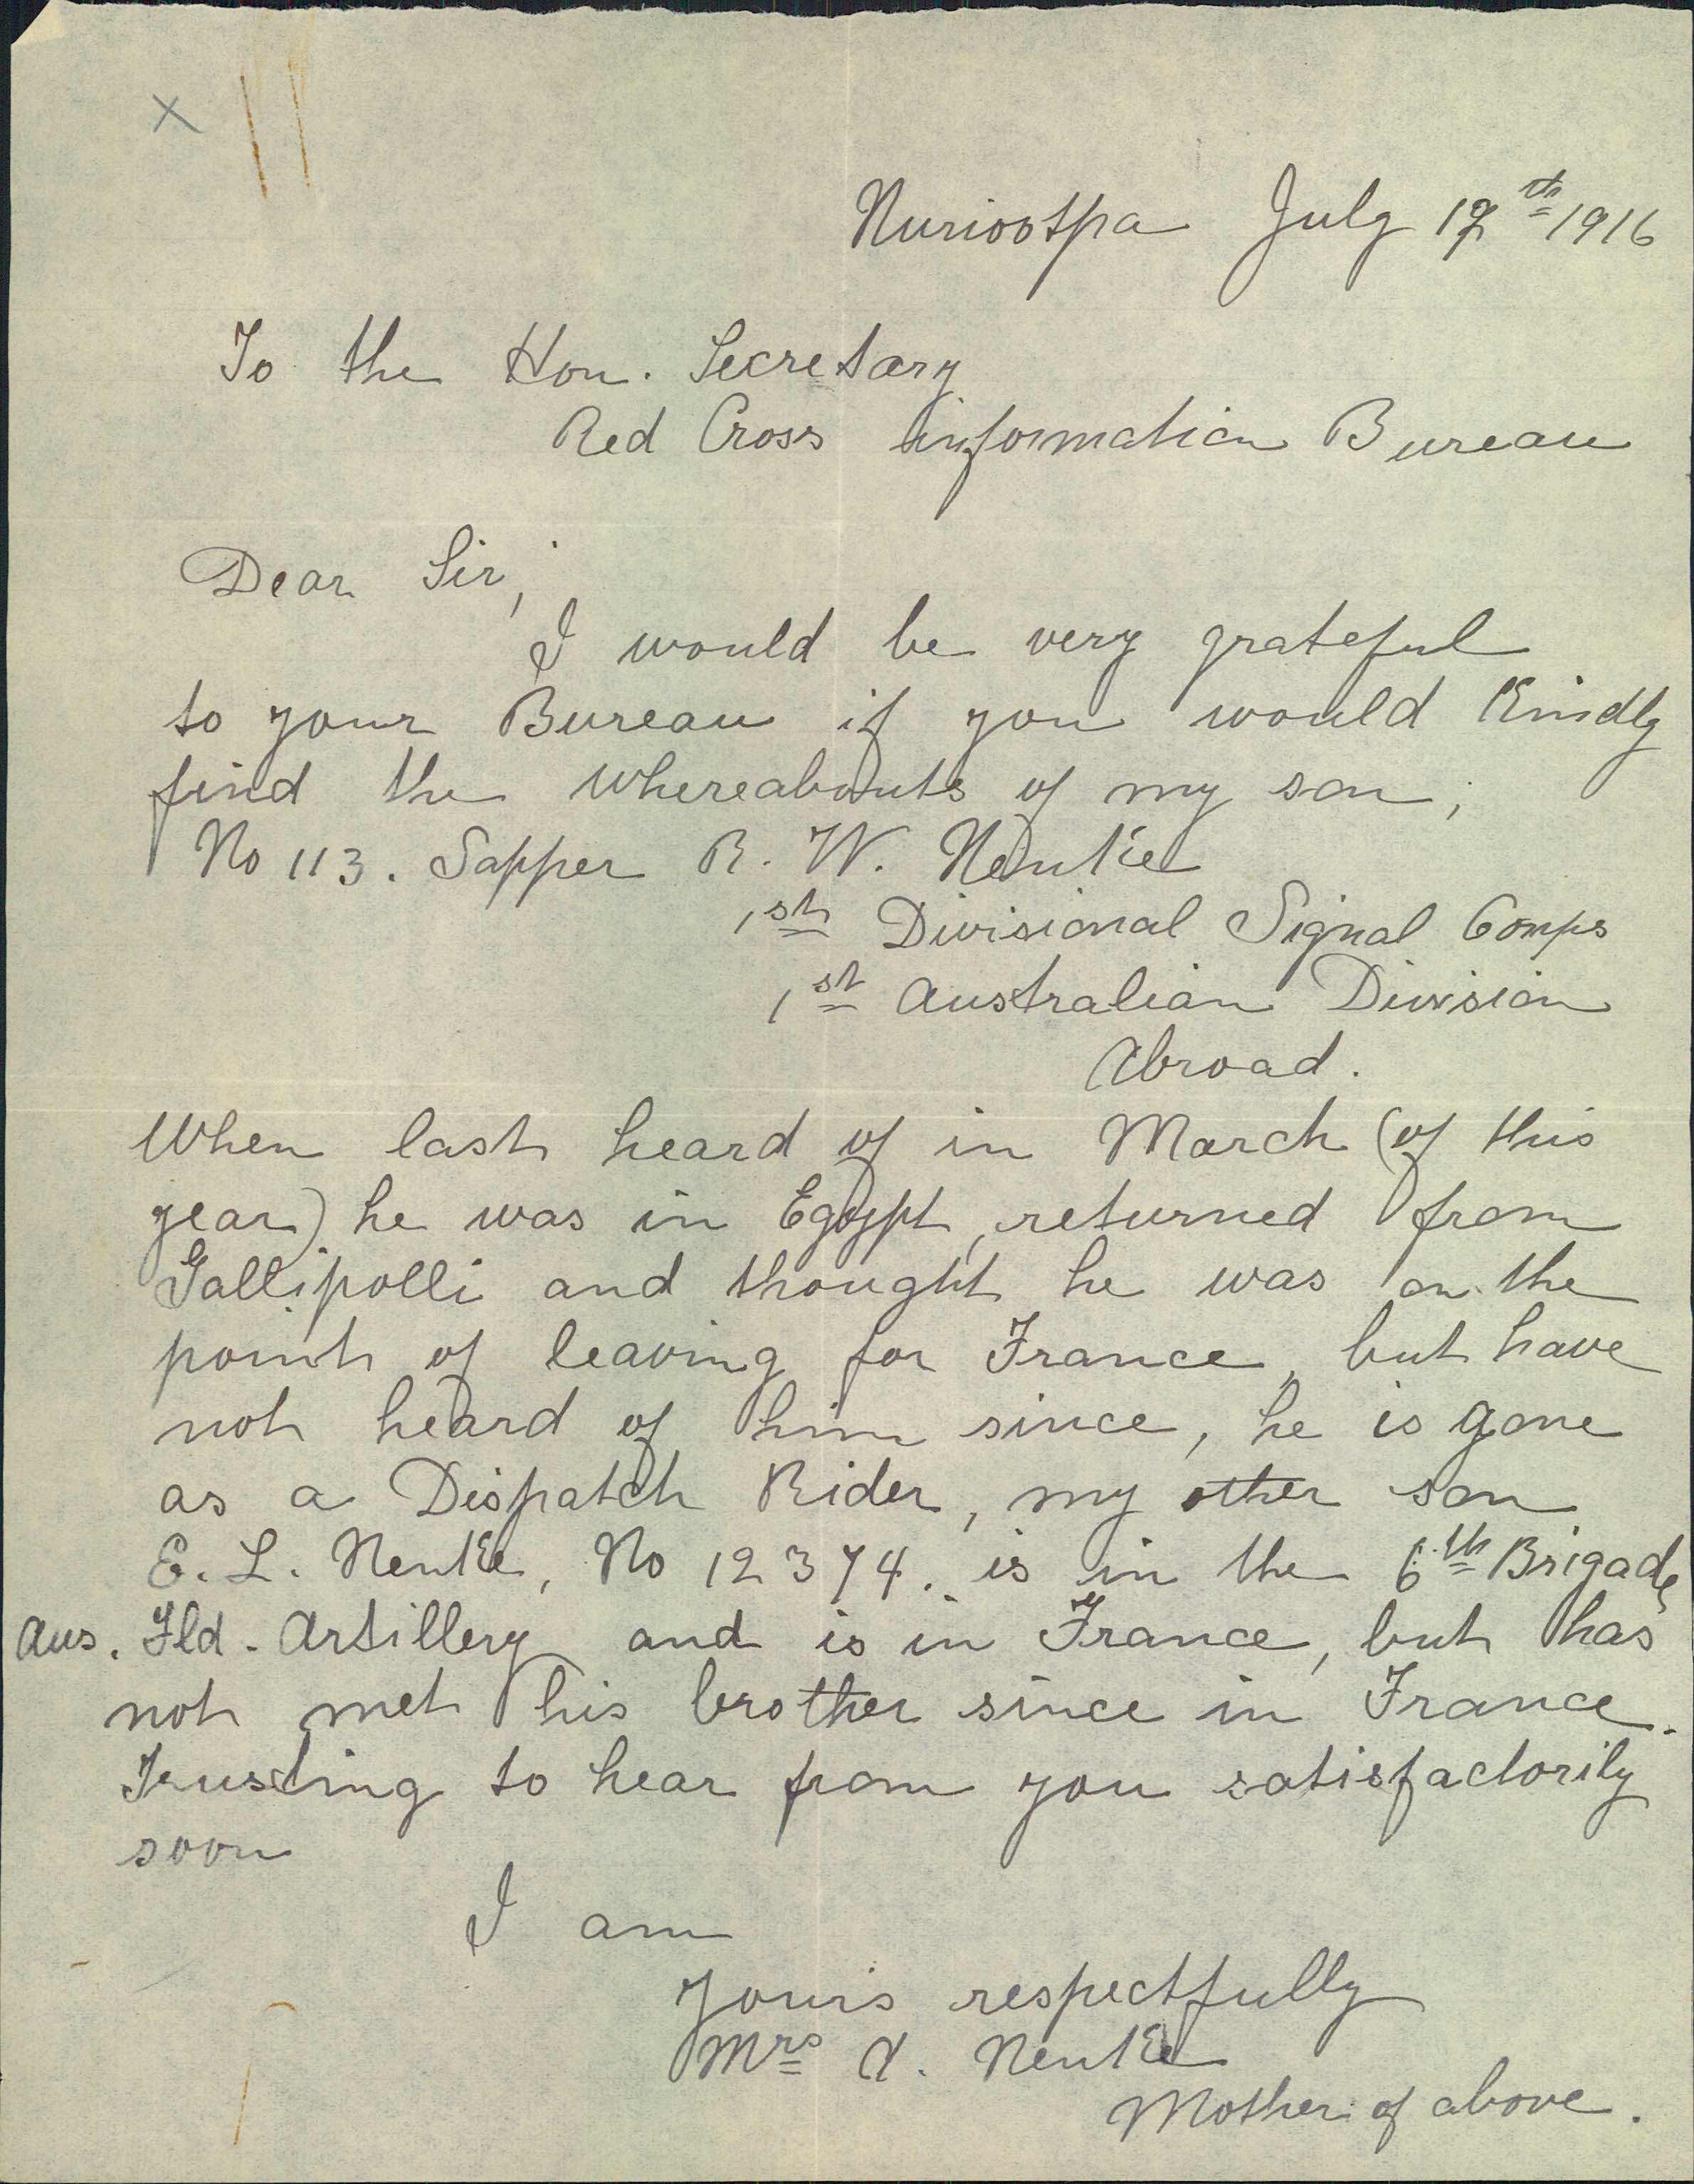 X
Nuriootpa July 19th 1916
To the Hon. Secretary
Red Cross information Bureau
Dear Sir,
I would be very grateful
to your Bureau if you would Kindly
find the whereabouts of my son,
No 113. Sapper R. W. Nenke
1st Divisional Signal Comps
1st Australian Division
Abroad.
When last heard of in March (of this
year) he was in Egypt, returned from
Gallipolli and thought he was on the
point of leaving for France, but have
not heard of him since, he is gone
as a Dispatch Rider, my other son
E. L. Nenke, No 12374. is in the 6th Brigade
Aus. Fld. Artillery and is in France, but has
not met his brother since in France.
Trusting to hear from you satisfactorily
soon
I am
Yours respectfully
Mrs A. Nenke
Mother of above.